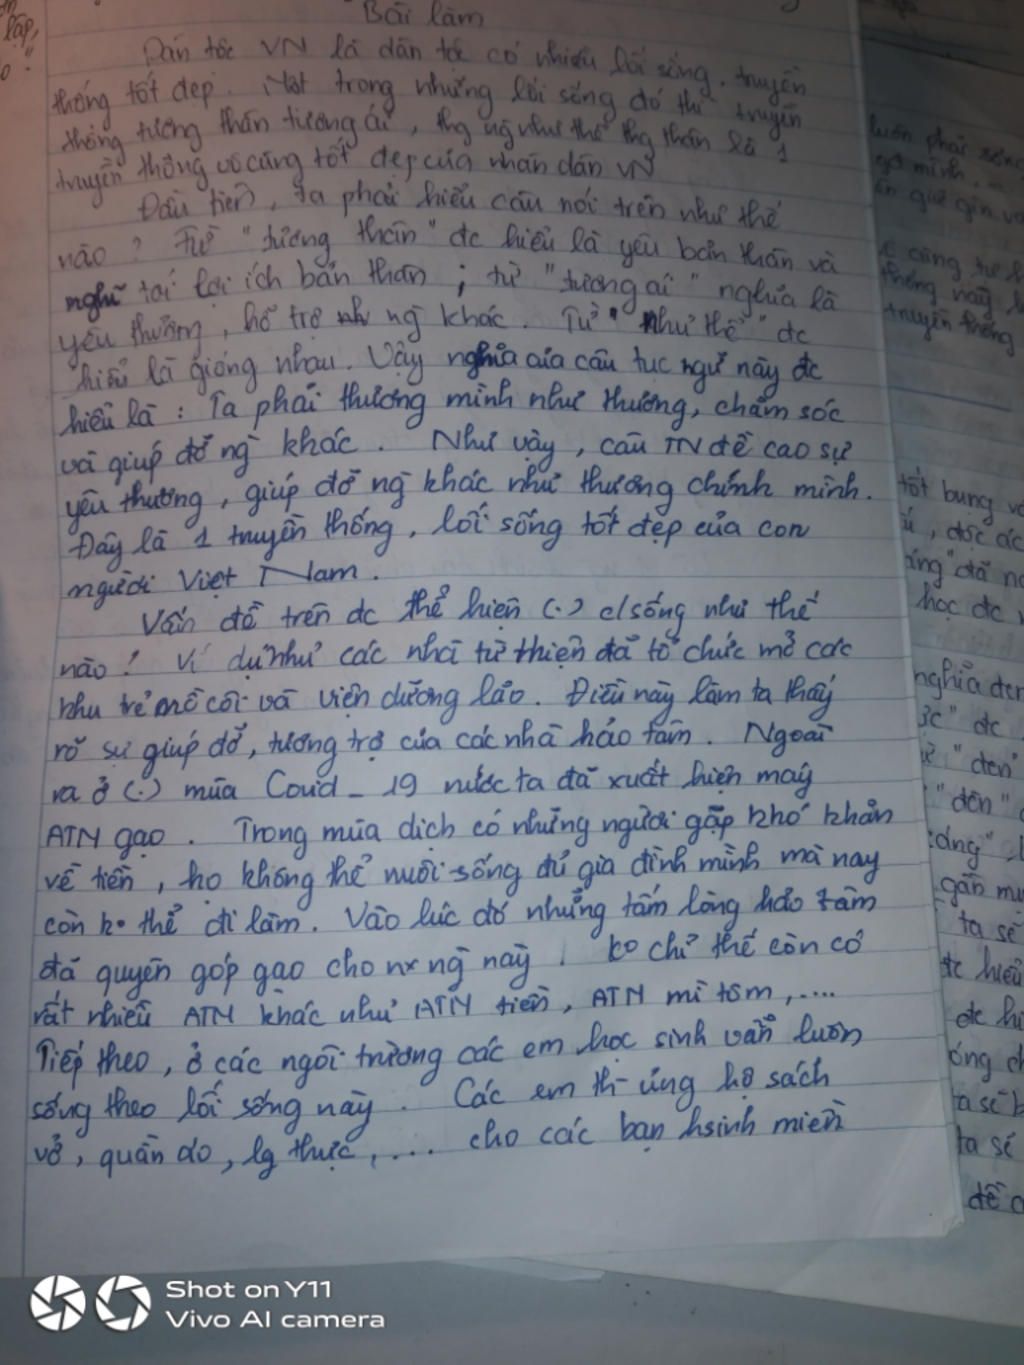 Bài làm
Dân tộc VN là dân tộc có nhiều lối sống, truyền
thống tốt đẹp. Một trong những lối sống đó thì truyền
thống tương thân tương ái, thg ng như thể thg thân là 1
truyền thống vô cùng tốt đẹp của nhân dân VN
Đầu tiên, ta phải hiểu câu nói trên như thế
nào? Từ "tương thân" đc hiểu là yêu bản thân và
nghĩ tới lợi ích bản thân; từ "tương ái" nghĩa là
yêu thương, hỗ trợ ng khác. Từ "như thể" đc
hiểu là giống nhau. Vậy nghĩa của câu tục ngữ này đc
hiểu là: Ta phải thương mình như thương, chăm sóc
và giúp đỡ ng khác. Như vậy, câu TN đề cao sự
yêu thương, giúp đỡ ng khác như thương chính mình.
Đây là 1 truyền thống, lối sống tốt đẹp của con
người Việt Nam.
Vấn đề trên đc thể hiện (.) c/sống như thế
nào! Ví dụ như các nhà từ thiện đã tổ chức mở các
khu trẻ mồ côi và viện dưỡng lão. Điều này làm ta thấy
rõ sự giúp đỡ, tương trợ của các nhà hảo tâm. Ngoài
ra ở (.) mùa Covid_19 nước ta đã xuất hiện máy
ATM gạo. Trong mùa dịch có những người gặp khó khăn
về tiền, họ không thể nuôi sống đủ gia đình mình mà nay
còn ko thể đi làm. Vào lúc đó những tấm lòng hảo tâm
đã quyên góp gạo cho nx ng này. ko chỉ thế còn có
rất nhiều ATM khác như ATM tiền, ATM mì tôm,....
Tiếp theo, ở các ngôi trường các em học sinh vẫn luôn
sống theo lối sống này. Các em th- ủng hộ sách
vở, quần áo, lg thực,... cho các bạn hsinh miền
luôn phải sống
gìn giữ
cũng tự
thống này
truyền thống
tốt bụng và
độc ác
đã
học đc
nghĩa đen
đc
"đen"
gần
ta sẽ
đc hiểu
đc
ta sẽ
ta sẽ
Shot on Y11
Vivo AI camera